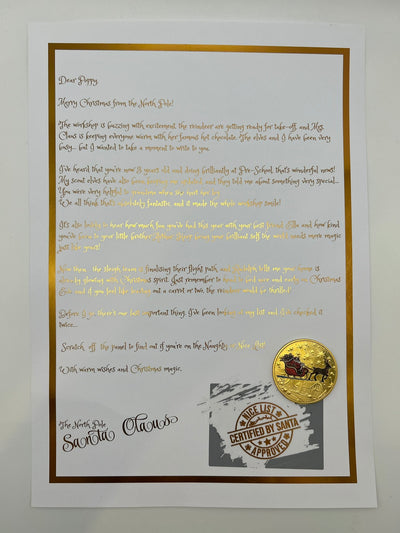 Dear Poppy,
Merry Christmas from the North Pole!
The workshop is buzzing with excitement the reindeer are getting ready for take-off, and Mrs.
Claus is keeping everyone warm with her famous hot chocolate. The elves and I have been very
busy... but I wanted to take a moment to write to you.
I've heard that you're now 3 years old and doing brilliantly at Pre-School that's wonderful news!
My scout elves have also been and they told me about something very special...
You were very helpful to when she hurt her leg
We all think that's absolutely fantastic, and it made the whole workshop smile!
It's also lovely to hear how much fun you've had this year with your best friend Ella and how kind
you've been to your little brother your brilliant self the world needs more magic
just like yours!
Now then... the sleigh team is finalising their flight path, and tells me your home is
already glowing with Christmas spirit. Just remember to bed nice and early on Christmas
Eve, and if you feel like leaving out a carrot or two, the reindeer would be thrilled!
Before I go there's one last important thing. I've been looking at my list and I've checked it
twice...
Scratch off the panel to find out if you're on the Naughty or Nice List!
With warm wishes and Christmas magic,
The North Pole
Santa Claus
NICE LIST
CERTIFIED BY SANTA
APPROVED